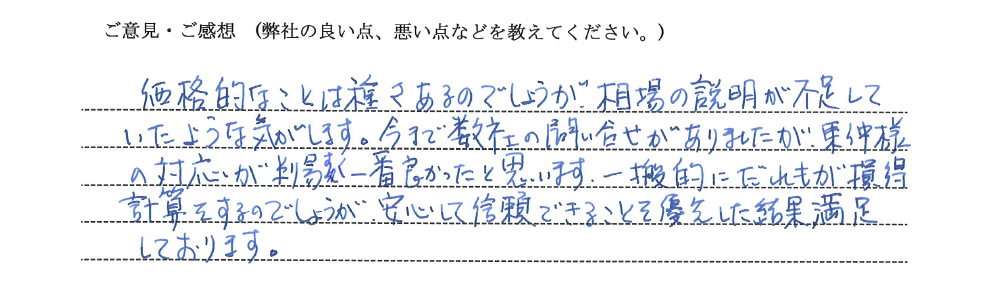 ご意見・ご感想 (弊社の良い点、悪い点などを教えてください。)
価格的なことは種々あるのでしょうが、相場の説明が不足して
いたような気がします。今まで数社の問い合せがありましたが、東仲様
の対応が判易く一番良かったと思います。一般的にだれもが損得
計算をするのでしょうが、安心して信頼できることを優先した結果満足
しております。